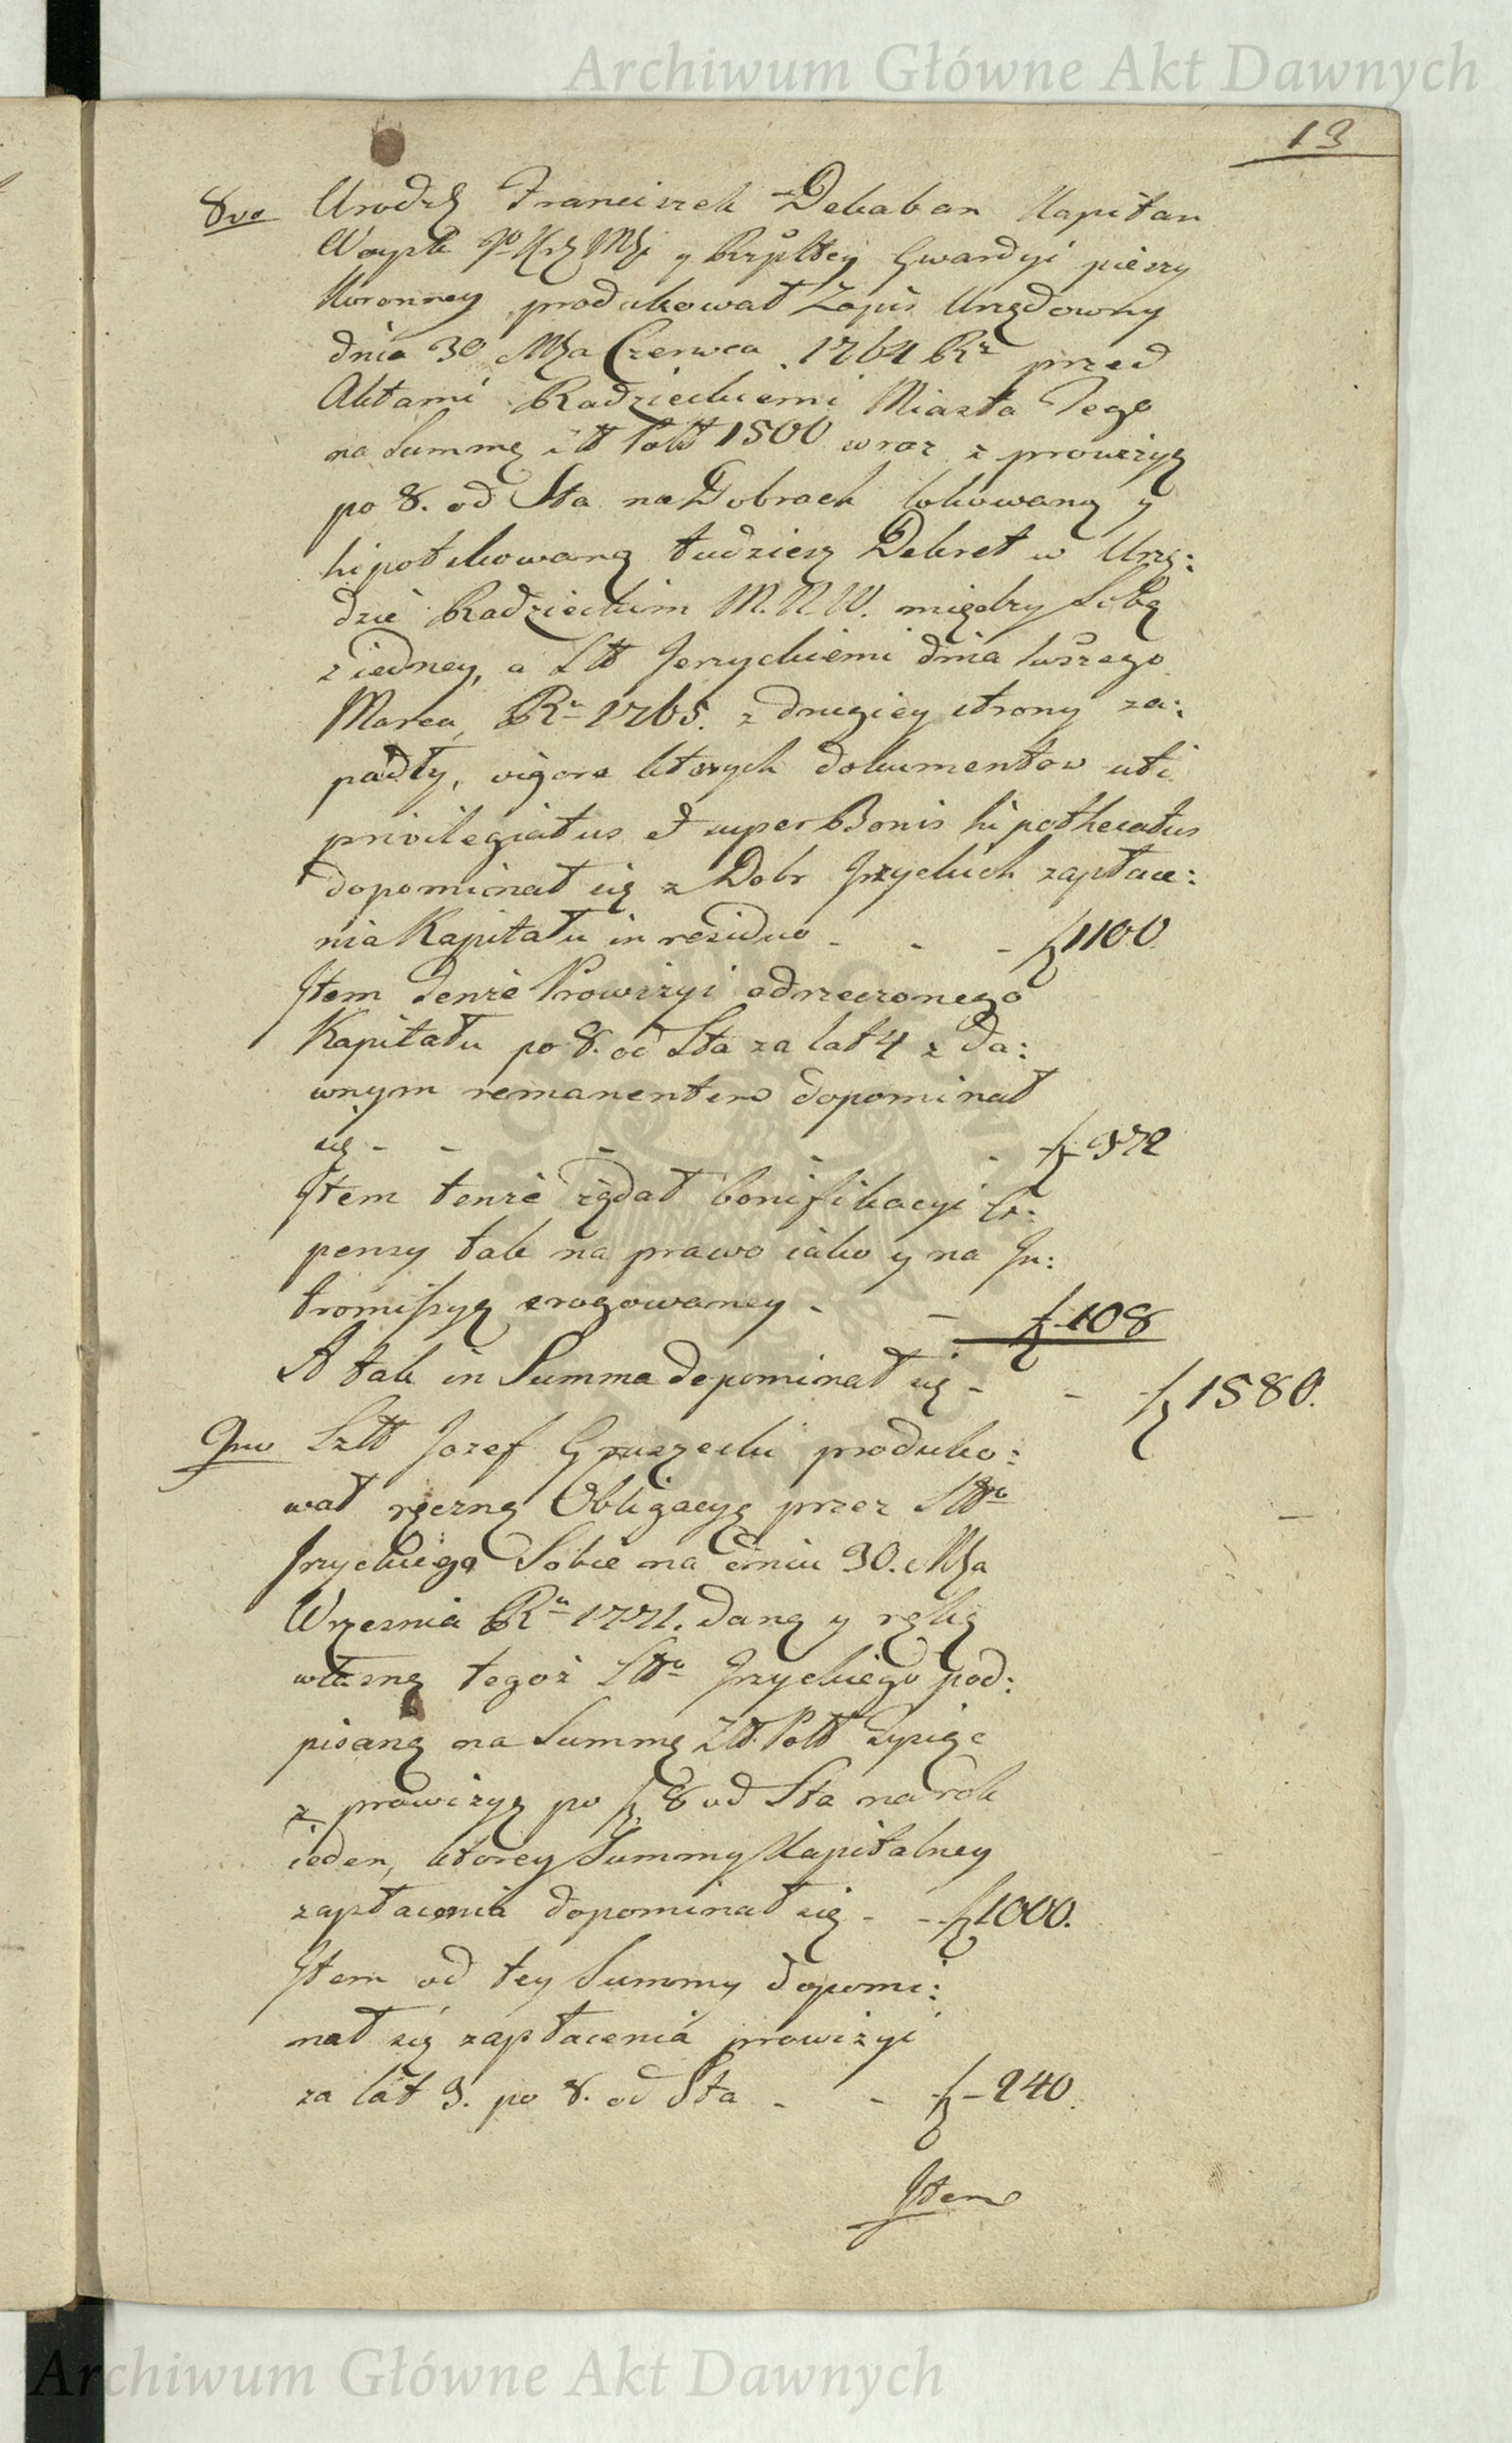 Archiwum Główne Akt Dawnych
13
8vo Urodz Franciszek Dekaban Kapitan
Woysk Jo Krz Mści y Rzpltey Gwardyi pieszy
Koronney produkował Zapis Urzędowny
dnia 30 Mśa Czerwca 1764 Rr przed
Aktami Radzieckiemi Miasta Tego
na Summę złt Polł 1500 wraz z prowizyą
po 8. od Sta na Dobrach lokowaną y
hipotekowaną tudziesz Dekret w Urzę:
dzie Radzieckim M. N. W. między Sobą
z iedney, a Stt Jerzyckiemi dnia
Marca, Ru 1765. z drugiey strony za:
padły, vigore ktorych dokumentow uti
privilegiatus et super Bonis hipothecatus
dopominał się z Dobr Jrzyckich zapłace:
nia Kapitału in residuo - - - f 1100
Jtem Tenże Prowizyi odrzeczonego
Kapitału po 8. od Sta za lat 4 z da:
wnym remanentem dopominał
się - - - - - f 372
Jtem tenże żądał bonifikacyi Ex:
pensy tak na prawo iako y na In:
tromissyą erogowaney - - f 108
A tak in Summa dopominał się - - f 1580.
9no Szltt Jozef Gruszecki produko:
wał ręczną Obligacyą przez Sttgo
Jrzyckiego Sobie na dniu 30. Mśa
Wrzesnia Ru 1771. daną y ręką
własną tegoż Stto Jrzyckiego pod:
pisaną na Summę Złt. Polł Tysiąc
z prowizyą po f 8 od Sta na rok
ieden, ktorey Summy Kapitalney
zapłacenia dopominał się - - f 1000.
Jtem od tey Summy dopomi:
nał się zapłacenia prowizyi
za lat 3. po 8. od Sta - - f - 240.
Jtem
Archiwum Główne Akt Dawnych